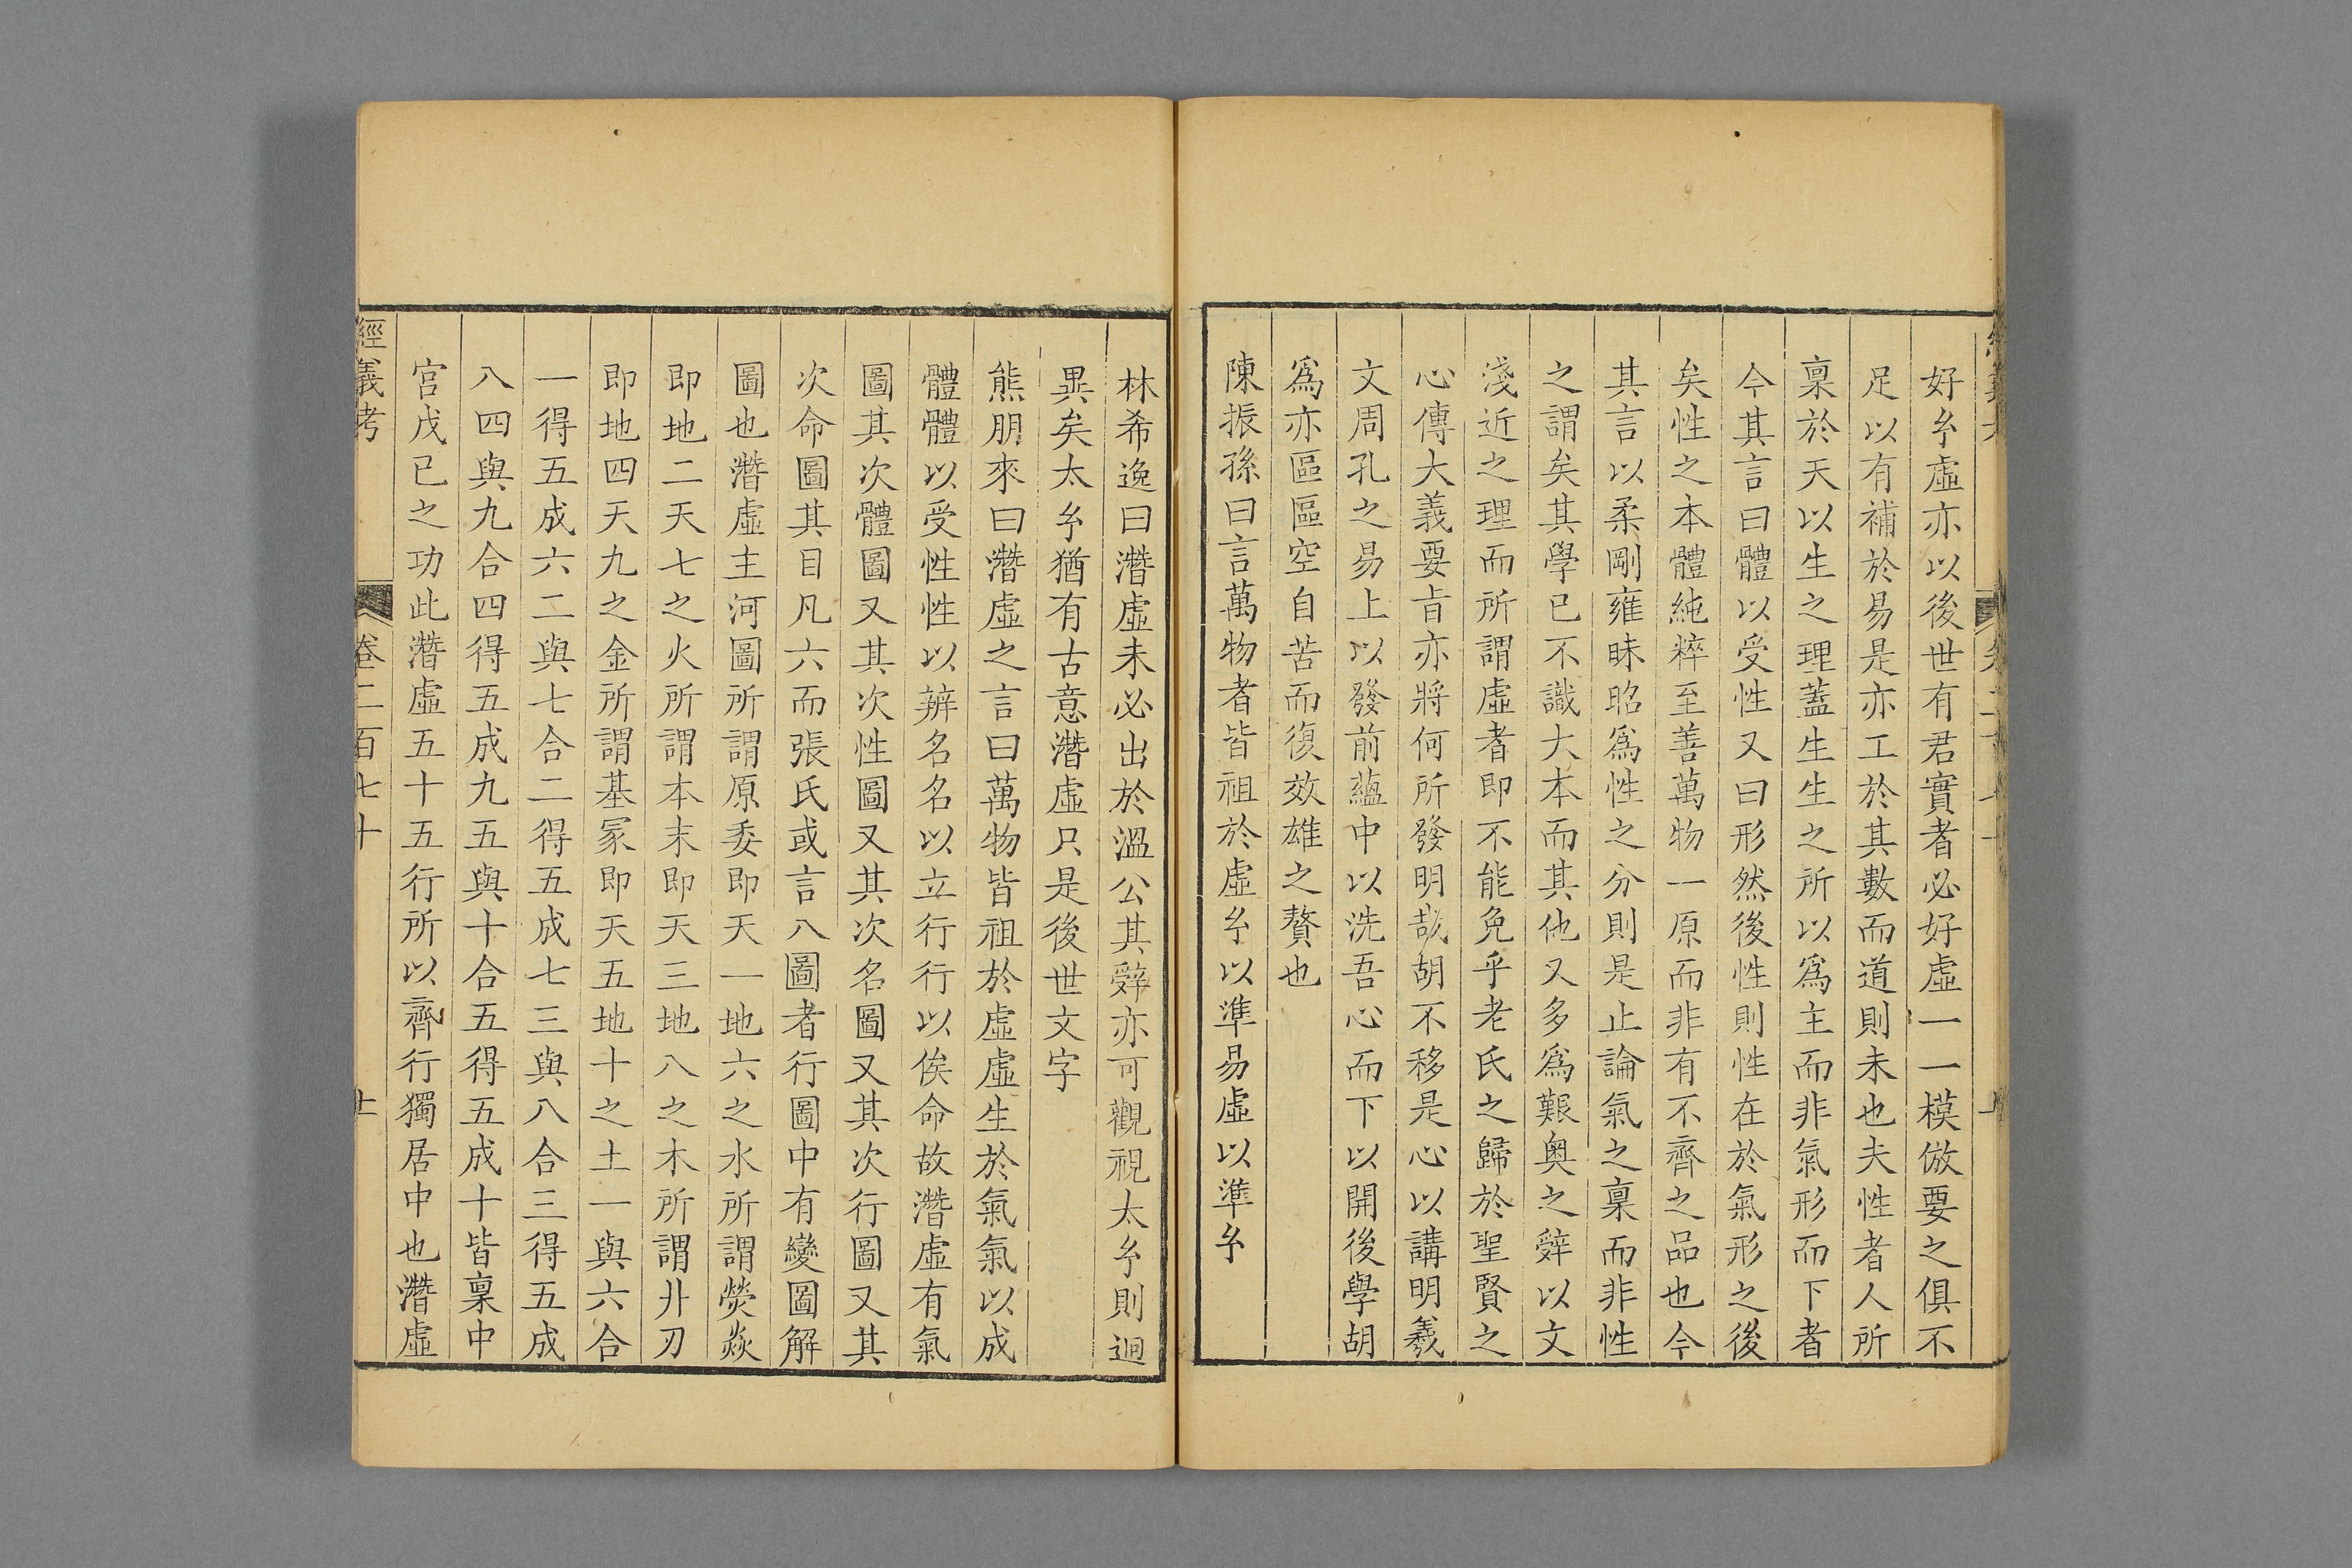 好𢆯虛亦以後世有君實者必好虛一一模倣要之俱不
足以有補於易是亦工於其數而道則未也夫性者人所
稟於天以生之理蓋生生之所以爲主而非氣形而下者
今其言曰體以受性又曰形然後性則性在於氣形之後
矣性之本體純粹至善萬物一原而非有不齊之品也今
其言以柔剛雍昧昭爲性之分則是止論氣之稟而非性
之謂矣其學已不識大本而其他又多爲艱奥之辤以文
淺近之理而所謂虛者即不能免乎老氏之歸於聖賢之
心傳大義要旨亦將何所發明哉胡不移是心以講明羲
文周孔之易上以發前蘊中以洗吾心而下以開後學胡
爲亦區區空自苦而復效雄之贅也
陳振孫曰言萬物者皆祖於虛𢆯以準易虛以準𢆯
林希逸曰潛虛未必出於溫公其辤亦可觀視太𢆯則逈
異矣太𢆯猶有古意潛虛只是後世文字
熊朋來曰潛虛之言曰萬物皆祖於虛虛生於氣氣以成
體體以受性性以辨名名以立行行以俟命故潛虛有氣
圖其次體圖又其次性圖又其次名圖又其次行圖又其
次命圖其目凡六而張氏或言八圖者行圖中有變圖解
圖也潛虛主河圖所謂原委即天一地六之水所謂熒焱
即地二天七之火所謂本末即天三地八之木所謂廾刃
即地四天九之金所謂基冢即天五地十之土一與六合
一得五成六二與七合二得五成七三與八合三得五成
八四與九合四得五成九五與十合五得五成十皆稟中
宮戊己之功此潛虛五十五行所以齊行獨居中也潛虛
經義考
卷二百七十